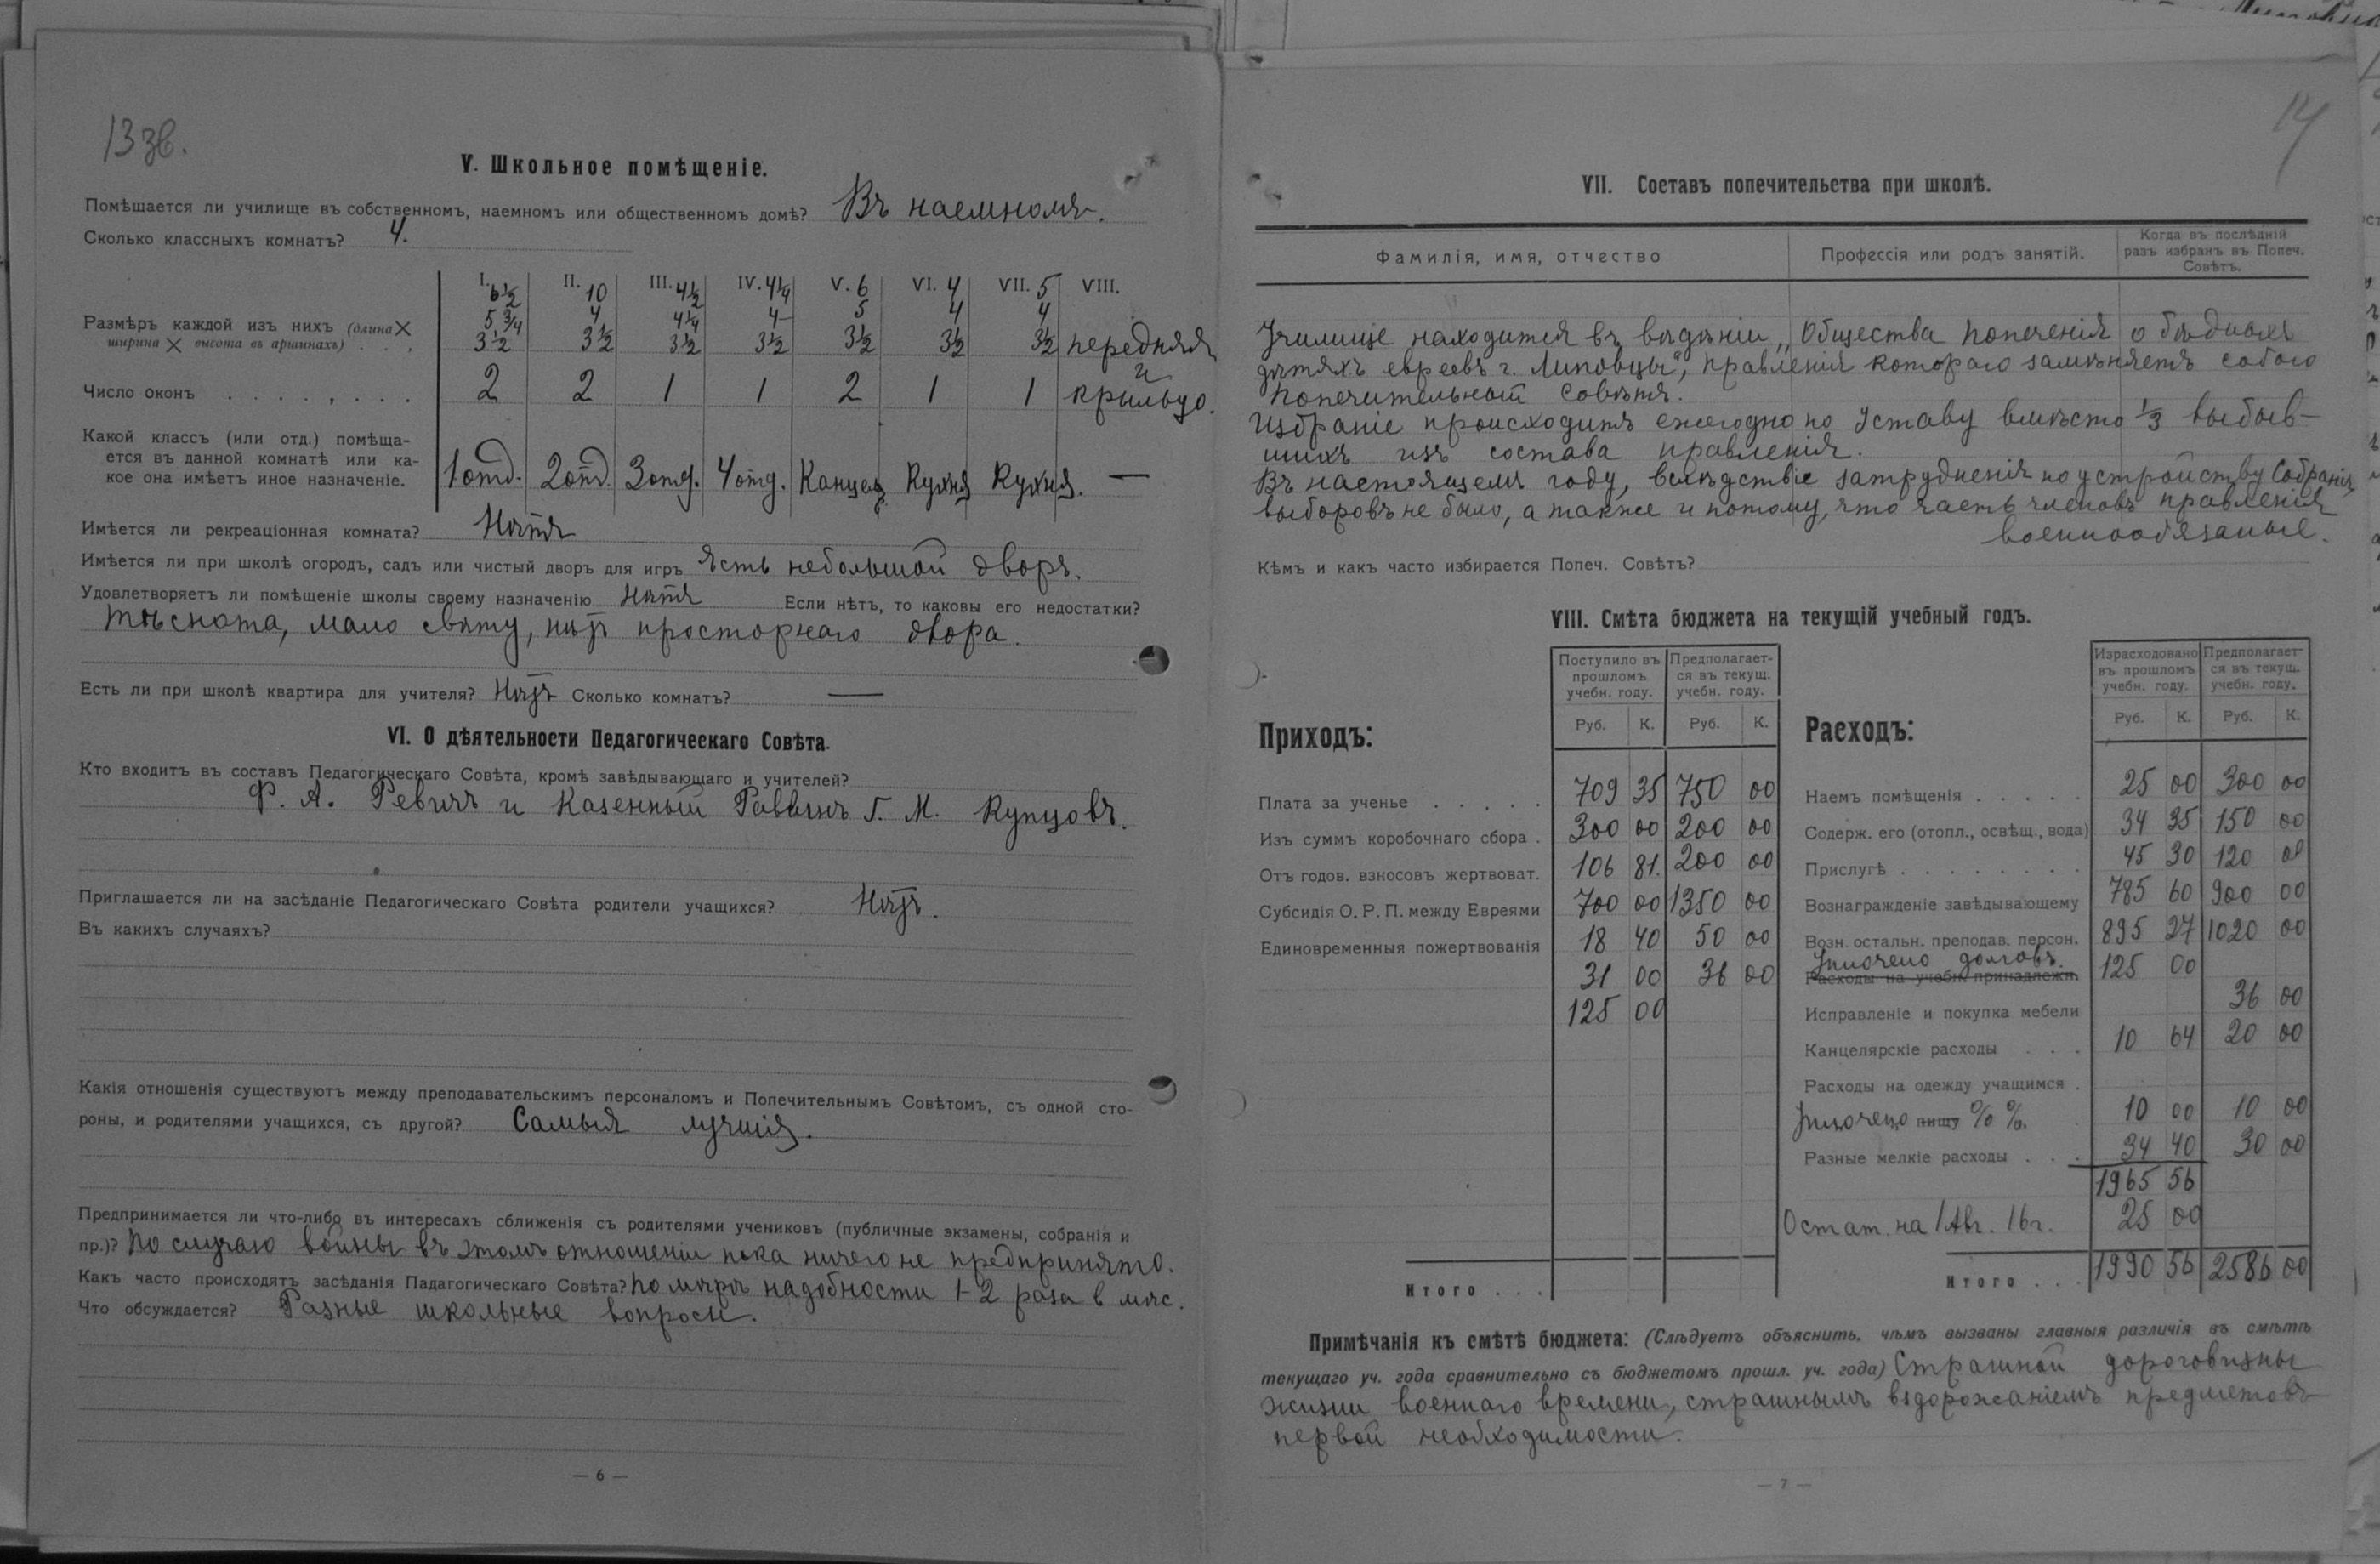 13 зв.
V. Школьное помѣщеніе.
Помѣщается ли училище въ собственномъ, наемномъ или общественномъ домѣ? Въ наемномъ.
Сколько классныхъ комнатъ? 4.
I. II. III. IV. V. VI. VII. VIII.
6½ 10 4½ 4¼ 6 4 5
Размѣръ каждой изъ нихъ (длина × 5¾ 4 4¼ 4 5 4 4
ширина × высота въ аршинахъ) . . . 3½ 3½ 3½ 3½ 3½ 3½ 3½ передняя
Число оконъ . . . . . . . . 2 2 1 1 2 1 1 и крыльцо.
Какой классъ (или отд.) помѣща-
ется въ данной комнатѣ или ка-
кое она имѣетъ иное назначеніе. 1 отд. 2 отд. 3 отд. 4 отд. Канцел. Кухня Кухня. —
Имѣется ли рекреаціонная комната? Нѣтъ
Имѣется ли при школѣ огородъ, садъ или чистый дворъ для игръ Есть небольшой дворъ.
Удовлетворяетъ ли помѣщеніе школы своему назначенію Нѣтъ Если нѣтъ, то каковы его недостатки?
Тѣснота, мало свѣту, нѣтъ просторнаго двора.
Есть ли при школѣ квартира для учителя? Нѣтъ Сколько комнатъ? —
VI. О дѣятельности Педагогическаго Совѣта.
Кто входитъ въ составъ Педагогическаго Совѣта, кромѣ завѣдывающаго и учителей?
Ф. А. Ревичъ и Казенный Раввинъ Г. М. Купцовъ.
Приглашается ли на засѣданіе Педагогическаго Совѣта родители учащихся? Нѣтъ.
Въ какихъ случаяхъ?
Какія отношенія существуютъ между преподавательскимъ персоналомъ и Попечительнымъ Совѣтомъ, съ одной сто-
роны, и родителями учащихся, съ другой? Самыя лучшія.
Предпринимается ли что-либо въ интересахъ сближенія съ родителями учениковъ (публичные экзамены, собранія и
пр.)? По случаю войны въ этомъ отношеніи пока ничего не предпринято.
Какъ часто происходятъ засѣданія Падагогическаго Совѣта? По мѣрѣ надобности 1-2 раза в мѣс.
Что обсуждается? Разные школьные вопросы.
— 6 —
14
VII. Составъ попечительства при школѣ.
Фамилія, имя, отчество Профессія или родъ занятій. Когда въ послѣдній
разъ избранъ въ Попеч.
Совѣтъ.
Училище находится въ вѣдѣніи „Общества попеченія о бѣдныхъ
дѣтяхъ евреевъ г. Липовцы", правленія котораго замѣняетъ собою
попечительный Совѣтъ.
Избраніе происходитъ ежегодно по Уставу вмѣсто ⅓ выбыв-
шихъ изъ состава правленія.
Въ настоящемъ году, вслѣдствіе затрудненія по устройству Собранія,
выборовъ не было, а также и потому, что часть членовъ правленія
военнообязаные.
Кѣмъ и какъ часто избирается Попеч. Совѣтъ?
VIII. Смѣта бюджета на текущій учебный годъ.
Приходъ: Поступило въ прошломъ учебн. году. Предполагает-ся въ текущ. учебн. году.
Руб. К. Руб. К.
Плата за ученье . . . . . 709 35 750 00
Изъ суммъ коробочнаго сбора . 300 00 200 00
Отъ годов. взносовъ жертвоват. 106 81. 200 00
Субсидія О. Р. П. между Евреями 700 00 1350 00
Единовременныя пожертвованія 18 40 50 00
31 00 36 00
125 00
Итого . . .
Расходъ: Израсходовано въ прошломъ учебн. году. Предполагает-ся въ текущ. учебн. году.
Руб. К. Руб. К.
Наемъ помѣщенія . . . . . 25 00 300 00
Содерж. его (отопл., освѣщ., вода) 34 35 150 00
Прислугѣ . . . . . . . . 45 30 120 00
Вознагражденіе завѣдывающему 785 60 900 00
Возн. остальн. преподав. персон. 895 27 1020 00
Уплочено долговъ. 125 00
Расходы на учебн. принадлежн.
Исправленіе и покупка мебели 36 00
Канцелярскіе расходы . . . 10 64 20 00
Расходы на одежду учащимся .
Уплочено пищу %%. 10 00 10 00
Разные мелкіе расходы . . . 34 40 30 00
1965 56
Остат. на 1 Авг. 16 г. 25 00
Итого . . . 1990 56 2586 00
Примѣчанія къ смѣтѣ бюджета: (Слѣдуетъ объяснить, чѣмъ вызваны главныя различія въ смѣтѣ
текущаго уч. года сравнительно съ бюджетомъ прошл. уч. года) Страшной дороговизны
жизни военнаго времени, страшнымъ вздорожаніемъ предметовъ
первой необходимости.
— 7 —